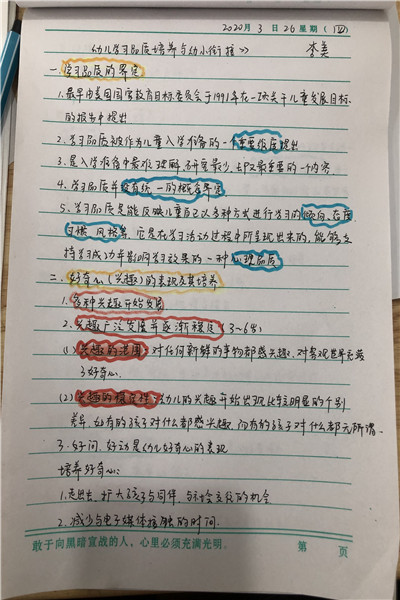 2020月3日26星期(四)
《幼儿学习品质培养与幼小衔接》 李美
一.学习品质的界定
1.最早由美国国家教育目标委员会于1991年在一项关于儿童发展目标
的报告中提出
2.学习品质被作为儿童入学准备的一个重要维度提出
3.是入学准备中最难理解、研究最少、却又最重要的一个内容
4.学习品质并没有统一的概念界定
5.学习品质是能反映儿童自己以多种方式进行学习的倾向、态度、
习惯、风格等,它是在学习活动过程中所呈现出来的,能够支
持学习成功率影响学习效果的一种心理品质
二.好奇心(兴趣)的表现及其培养
1.各种兴趣开始发展
2.兴趣广泛发展并逐渐稳定(3~6岁)
(1)兴趣的范围:对任何新鲜的事物都感兴趣、对客观世界充
满好奇心.
(2)兴趣的稳定性:幼儿的兴趣开始出现比较明显的个别
差异,如有的孩子对什么都感兴趣,而有的孩子对什么都无所谓.
3.好问、好动是幼儿好奇心的表现
培养好奇心:
1.走出去,扩大孩子与同伴、与社会交往的机会
2.减少与电子媒体接触的时间.
敢于向黑暗宣战的人,心里必须充满光明。 第 页